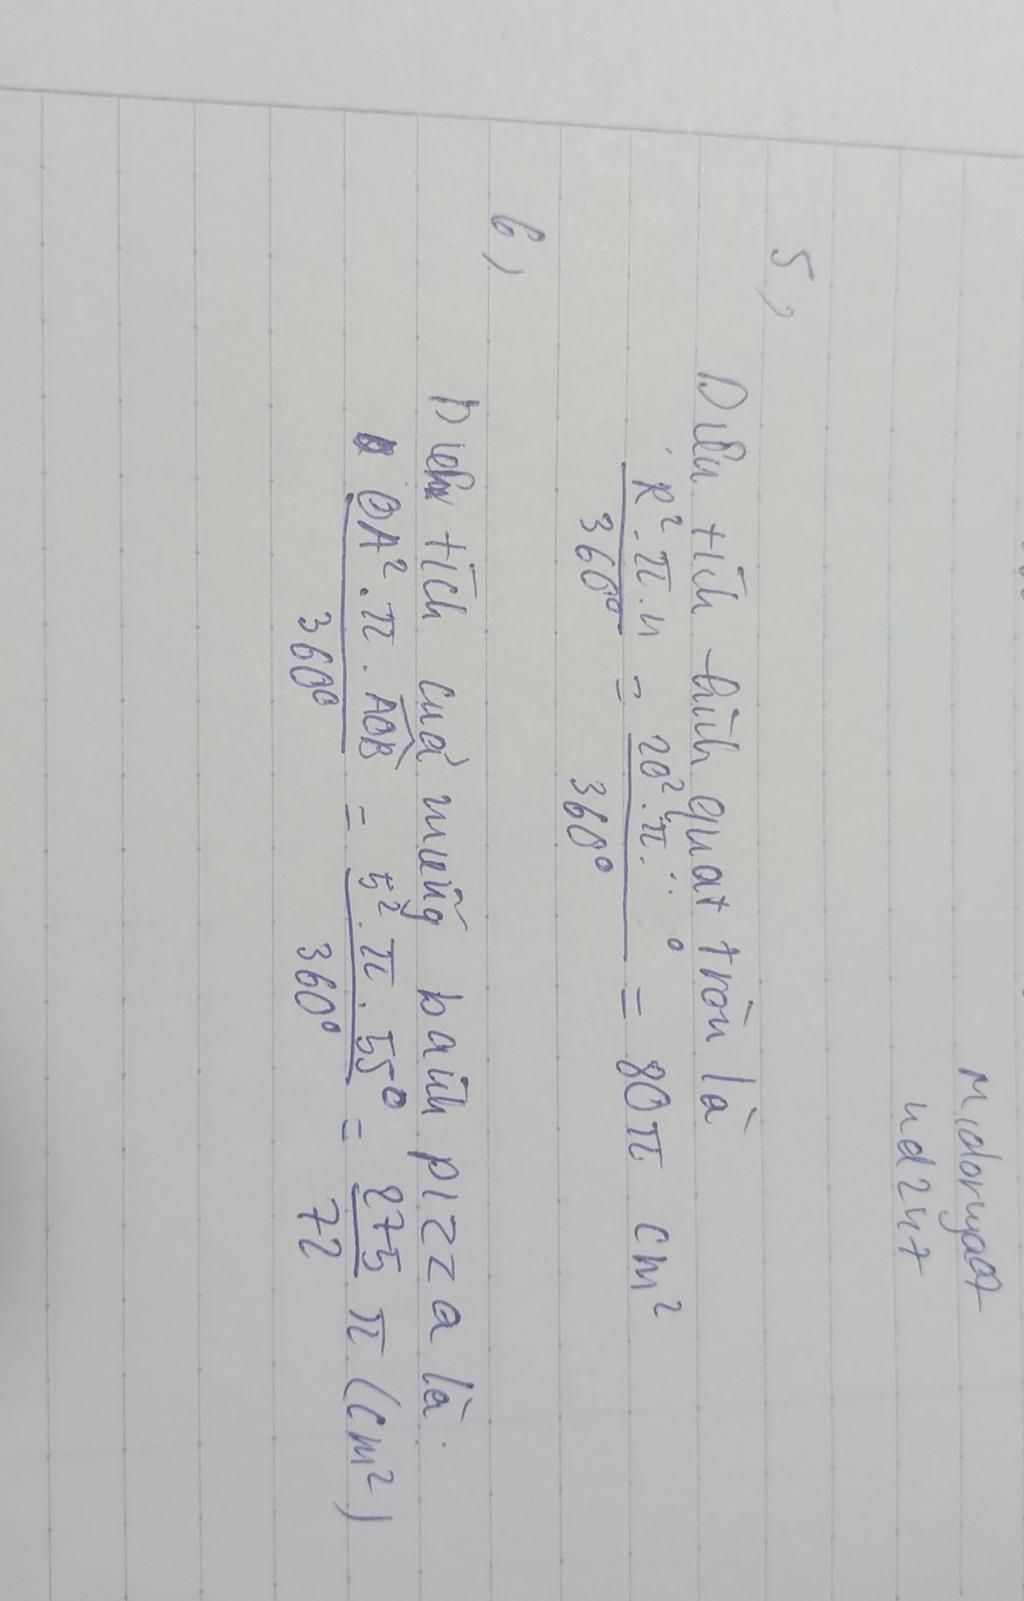 5,
Diện tích hình quạt tròn là
R².π.n / 360° = 20².π... ° / 360° = 80π cm²
6,
Diện tích của miếng bánh pizza là.
OA².π.AOB / 360° = 5².π.55° / 360° = 275 / 72 π (cm²)